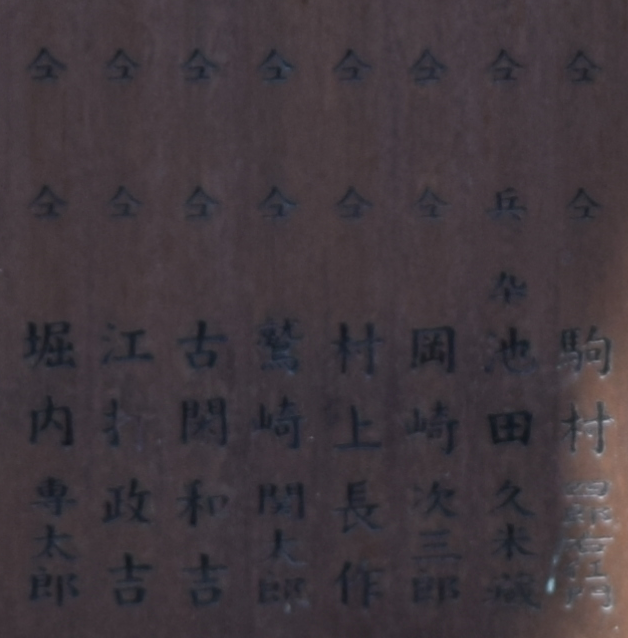 仝 仝 駒村四郎右衛門
仝 兵 卆 池田久米蔵
仝 仝 岡崎次三郎
仝 仝 村上長作
仝 仝 鷲崎関太郎
仝 仝 古関和吉
仝 仝 江打政吉
仝 仝 堀内専太郎